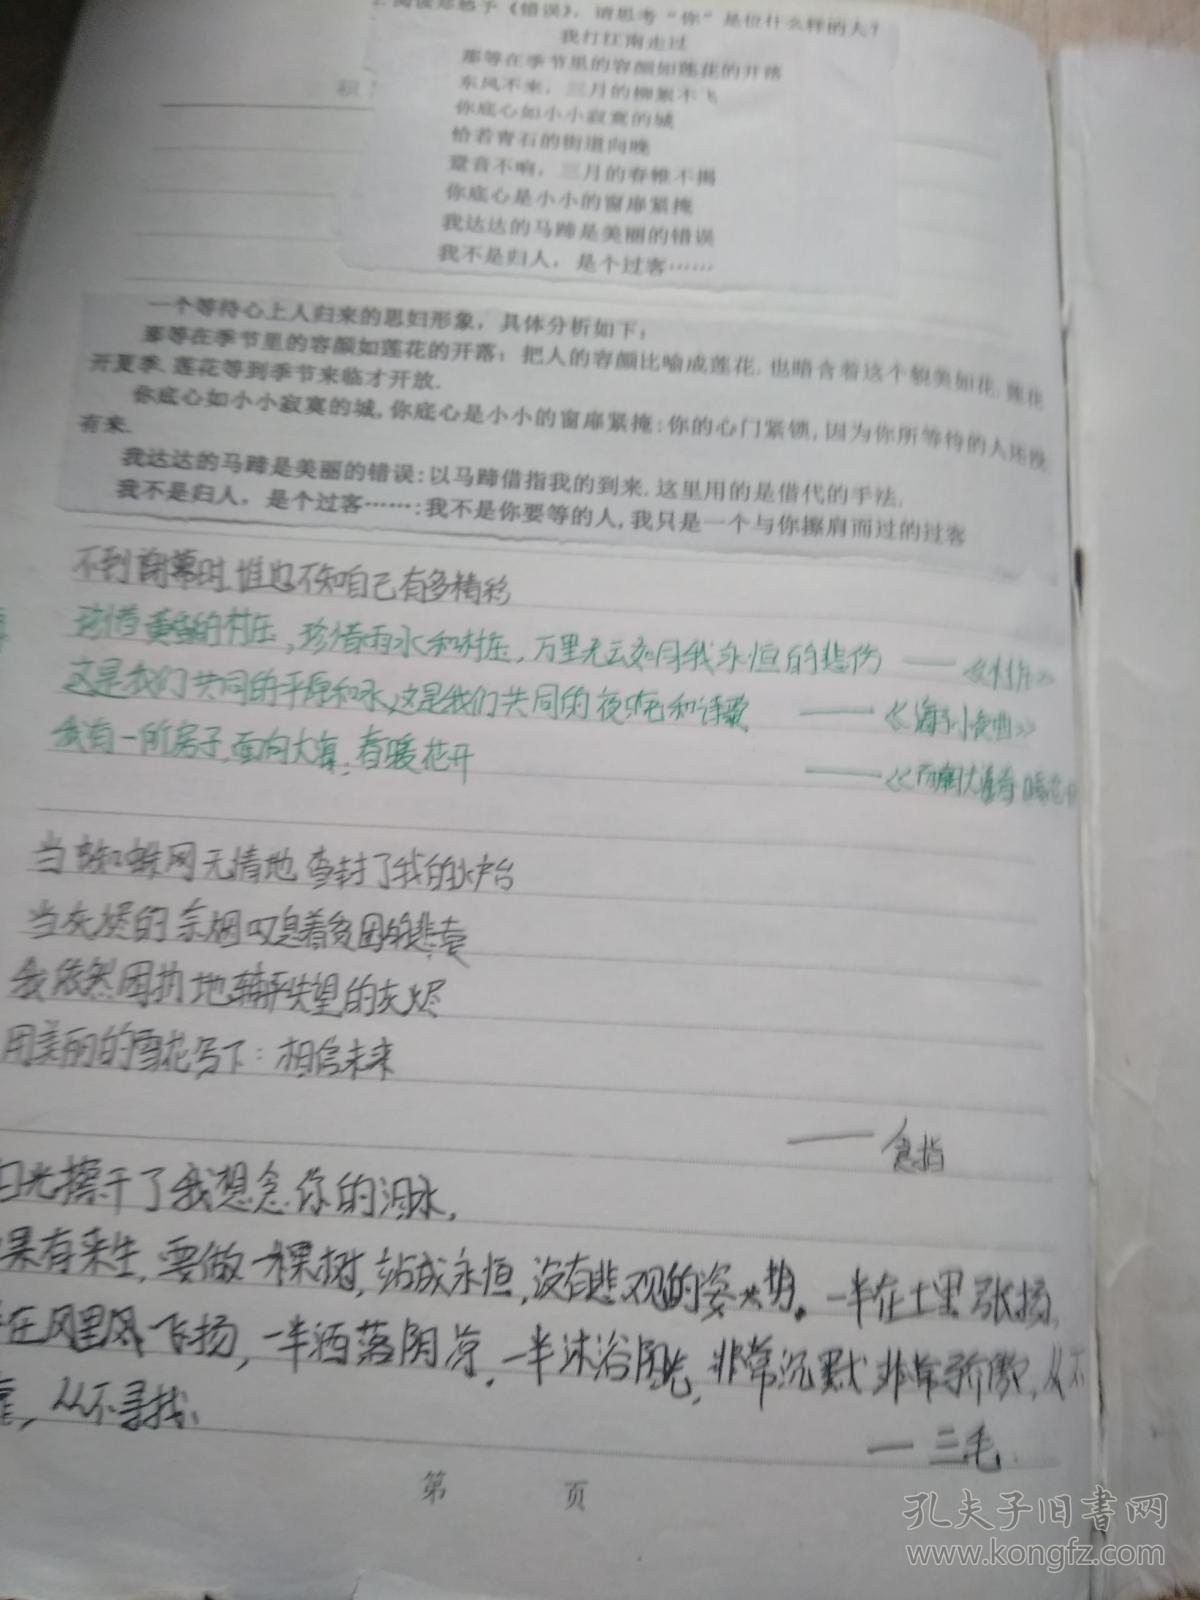 阅读郑愁予《错误》，请思考“你”是位什么样的人？
我打江南走过
那等在季节里的容颜如莲花的开落
东风不来，三月的柳絮不飞
你底心如小小寂寞的城
恰若青石的街道向晚
跫音不响，三月的春帷不揭
你底心是小小的窗扉紧掩
我达达的马蹄是美丽的错误
我不是归人，是个过客……
积
一个等待心上人归来的思妇形象，具体分析如下：
那等在季节里的容颜如莲花的开落：把人的容颜比喻成莲花，也暗含着这个貌美如花，莲花
开夏季，莲花等到季节来临才开放．
你底心如小小寂寞的城，你底心是小小的窗扉紧掩：你的心门紧锁，因为你所等待的人还没
有来．
我达达的马蹄是美丽的错误：以马蹄借指我的到来．这里用的是借代的手法．
我不是归人，是个过客……：我不是你要等的人，我只是一个与你擦肩而过的过客
不到谢幕时谁也不知自己有多精彩
珍惜黄昏的村庄，珍惜雨水和村庄，万里无云如同我永恒的悲伤 ——《村庄》
这是我们共同的平原和水，这是我们共同的夜晚和诗歌 ——《海子小夜曲》
我有一所房子，面向大海，春暖花开 ——《面朝大海春暖花
当蜘蛛网无情地查封了我的炉台
当灰烬的余烟叹息着贫困的悲哀
我依然固执地铺平失望的灰烬
用美丽的雪花写下：相信未来
——食指
光擦干了我想念你的泪水，
果有来生，要做一棵树，站成永恒，没有悲观的姿势。一半在土里张扬，
在风里风飞扬，一半洒落阴凉，一半沐浴阳光，非常沉默非常骄傲，从不
靠，从不寻找、
—三毛
第 页
孔夫子旧书网
www.kongfz.com